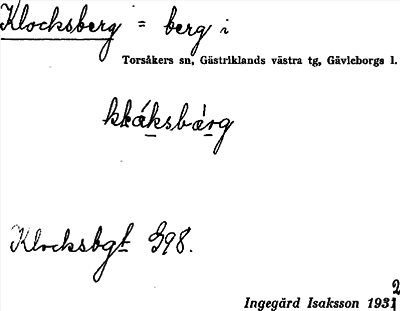 Klocksberg = berg i
Torsåkers sn, Gästriklands västra tg, Gävleborgs l.
Klocksbgt G98.
Ingegärd Isaksson 1932